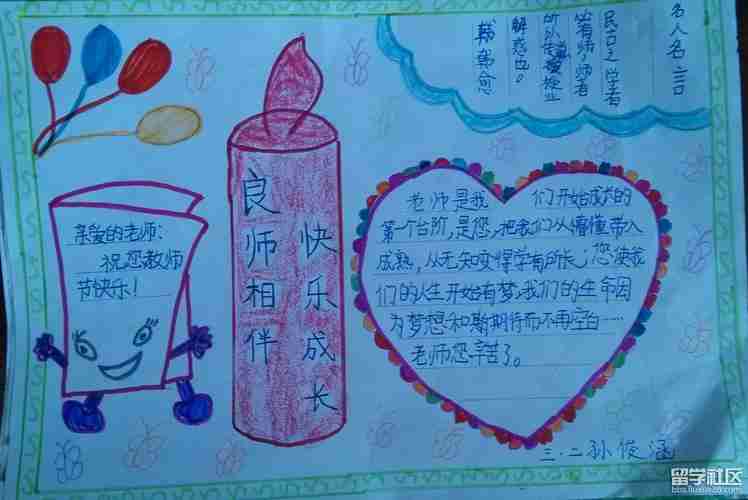 名人名言
民古之学者
必有师,师者
所以传道授业
解惑也。
韩韩愈
亲爱的老师:
祝您教师
节快乐!
良师相伴
快乐成长
老师是我 们开始成长的
第一个台阶,是您,把我们从懵懂带入
成熟,从无知变得学有所长;您使我
们的人生开始有梦,我们的生命因
为梦想和期待而不再空白……
老师您辛苦了。
三.二孙俊涵
留学社区
bbs.liuxue86.com